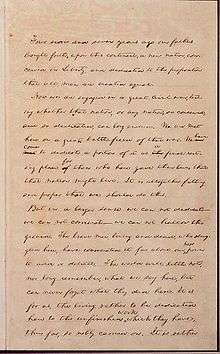 Four score and seven years ago our fathers
brought forth, upon this continent, a new nation, con-
ceived in Liberty, and dedicated to the proposition
that all men are created equal.
Now we are engaged in a great civil war, test-
ing whether that nation, or any nation, so conceived,
and so dedicated, can long endure. We are met
here on a great battlefield of that war. We have
come to dedicate a portion of it as a final rest-
ing place for those who here gave their lives that
that nation might live. It is altogether fitting
and proper that we should do this.
But in a larger sense we can not dedicate
we can not consecrate we can not hallow this
ground. The brave men, living and dead, who strug-
gled here, have consecrated it far above our poor power
to add or detract. The world will little note,
nor long remember, what we say here, but
can never forget what they did here. It is
for us, the living, rather to be dedicated
here to the unfinished work which they have,
thus far, so nobly carried on. It is rather